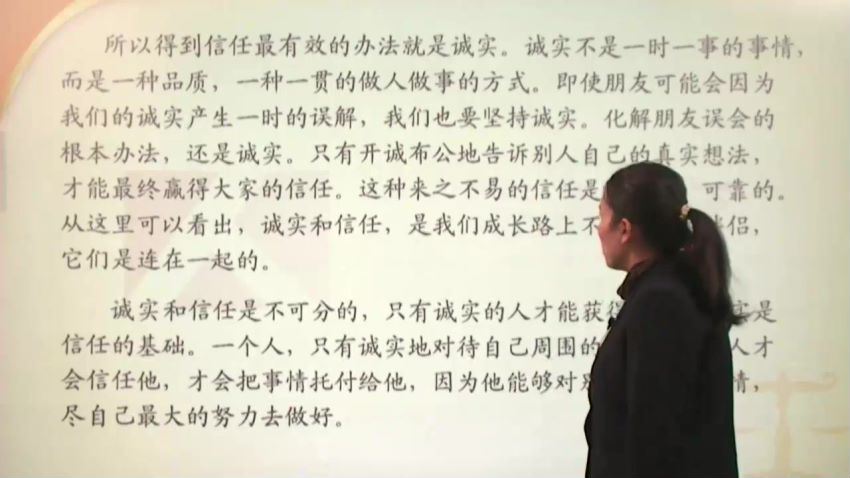 所以得到信任最有效的办法就是诚实。诚实不是一时一事的事情，
而是一种品质，一种一贯的做人做事的方式。即使朋友可能会因为
我们的诚实产生一时的误解，我们也要坚持诚实。化解朋友误会的
根本办法，还是诚实。只有开诚布公地告诉别人自己的真实想法，
才能最终赢得大家的信任。这种来之不易的信任是 可靠的。
从这里可以看出，诚实和信任，是我们成长路上不 伴侣，
它们是连在一起的。
诚实和信任是不可分的，只有诚实的人才能获得 实是
信任的基础。一个人，只有诚实地对待自己周围的 人才
会信任他，才会把事情托付给他，因为他能够对别 情，
尽自己最大的努力去做好。